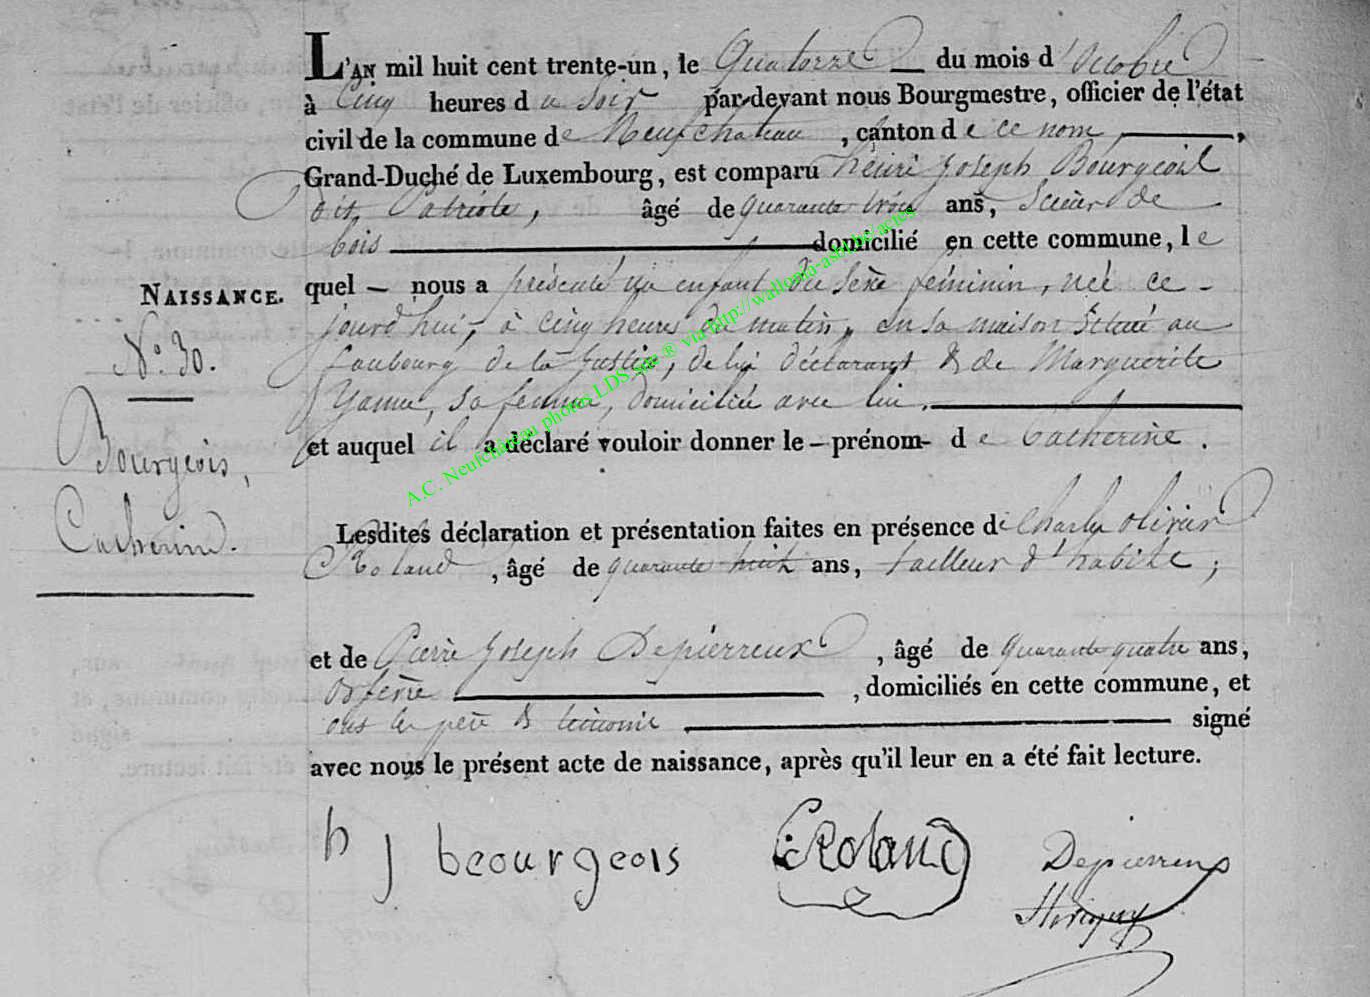 L'AN mil huit cent trente-un, le Quatorze du mois d'Octobre
à Cinq heures du soir par-devant nous Bourgmestre, officier de l'état
civil de la commune de Neufchateau, canton de ce nom,
Grand-Duché de Luxembourg, est comparu henri joseph Bourgeois
dit Patriote, âgé de quarante trois ans, Scieur de
bois domicilié en cette commune, le
NAISSANCE.
quel — nous a présenté un enfant du sexe féminin, née ce-
jourd'hui, à cinq heures du matin, en sa maison située au
N.° 30.
faubourg de la justice, de lui déclarant & de Marguerite
sa femme, domiciliée avec lui.
Bourgeois,
Catherine.
et auquel il a déclaré vouloir donner le — prénom - de Catherine.
Lesdites déclaration et présentation faites en présence de Charles olivier
Roland, âgé de quarante huit ans, tailleur d'habits,
et de Pierre joseph Depierreux, âgé de quarante quatre ans,
orfevre, domiciliés en cette commune, et
ont les père & témoins signé
avec nous le présent acte de naissance, après qu'il leur en a été fait lecture.
h j beourgeois
Roland
Depierreux
A.C. Neufchâteau photos LDS.Sse ® via http://wallonia-asbl.be/actes